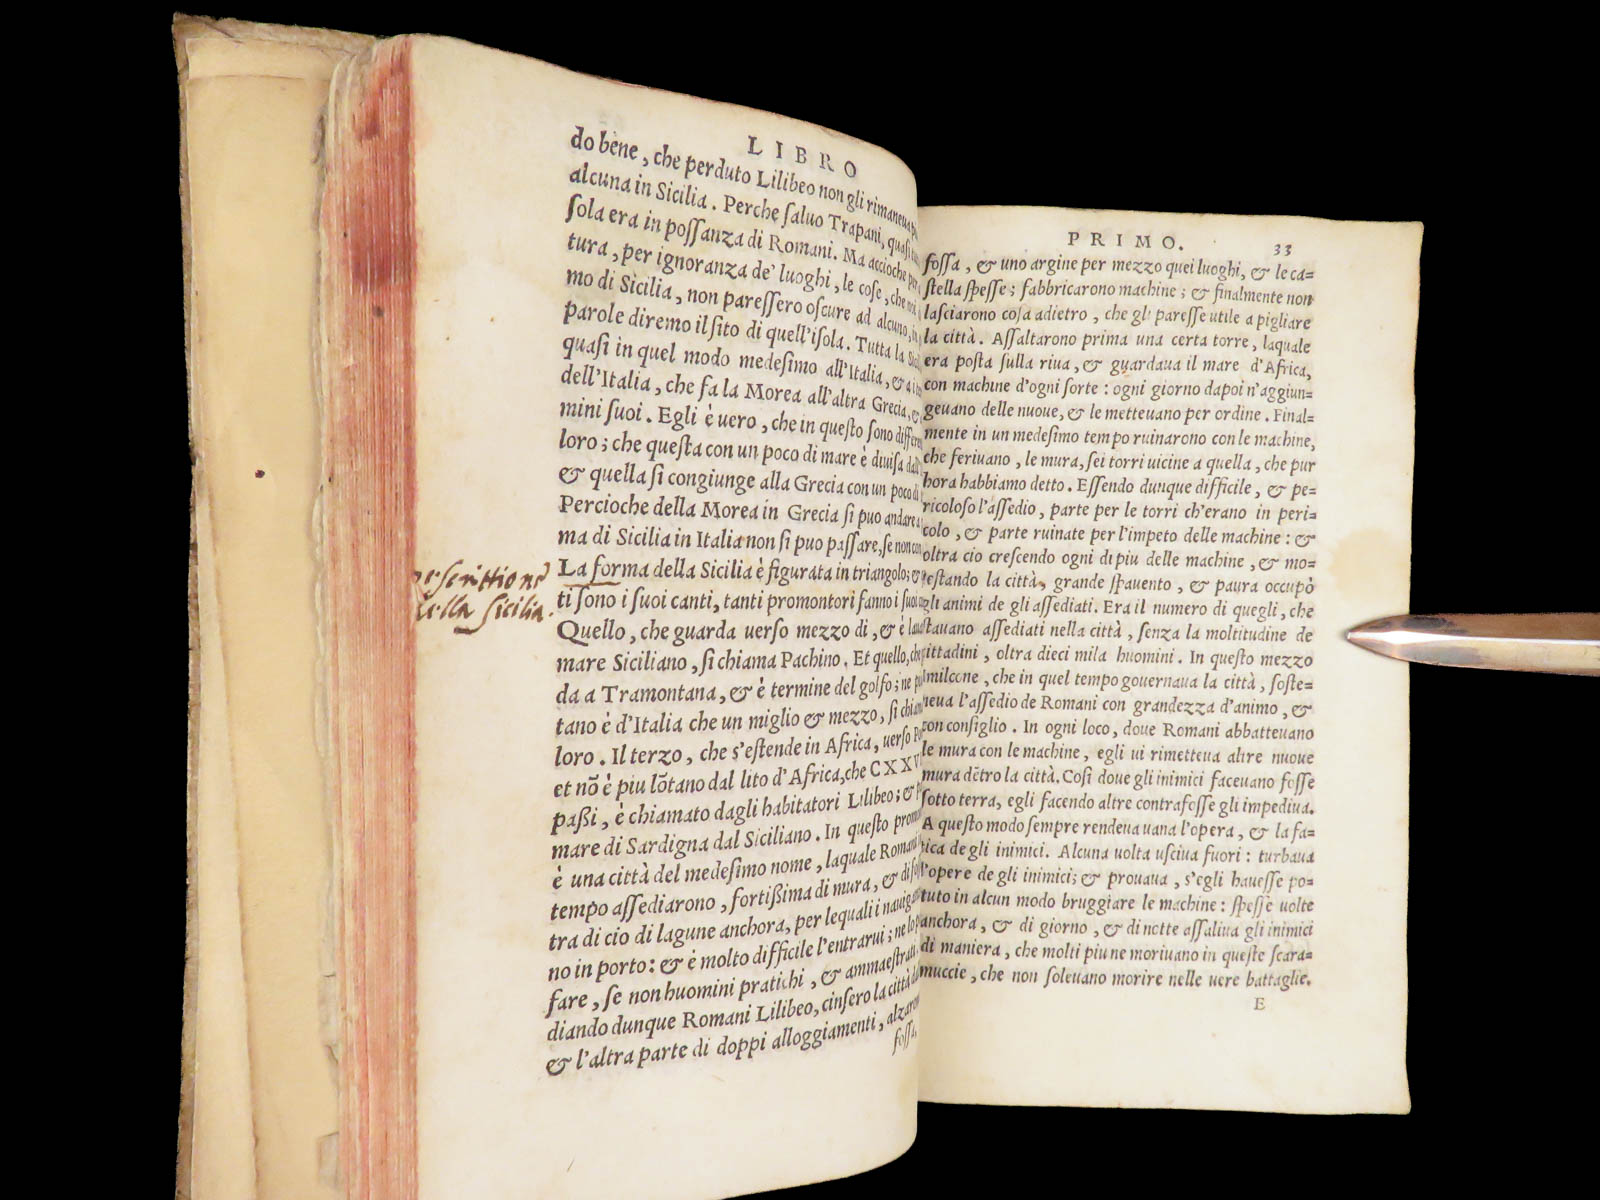 LIBRO
do bene, che perduto Lilibeo non gli rimaneua
alcuna in Sicilia. Perche ſaluo Trapani, quaſi
ſola era in poſſanza di Romani. Ma accioche
tura, per ignoranza de' luoghi, le coſe, che
mo di Sicilia, non pareſſero oſcure ad alcuno,
parole diremo il ſito di quell'iſola. Tutta la
quaſi in quel modo medeſimo all'Italia, &
dell'Italia, che fa la Morea all'altra Grecia,
mini ſuoi. Egli è uero, che in queſto ſono
loro; che queſta con un poco di mare è diuiſa
& quella ſi congiunge alla Grecia con un poco di
Percioche della Morea in Grecia ſi puo andare
ma di Sicilia in Italia non ſi puo paſſare, ſe non con
La forma della Sicilia è figurata in triangolo; &
ti ſono i ſuoi canti, tanti promontori fanno i ſuoi
Quello, che guarda uerſo mezzo di, & è
mare Siciliano, ſi chiama Pachino. Et quello, che
da a Tramontana, & è termine del golfo; ne
tano è d'Italia che un miglio & mezzo, ſi
loro. Il terzo, che s'eſtende in Africa, uerſo
et nõ è piu lõtano dal lito d'Africa, che
paßi, è chiamato dagli habitatori Lilibeo; &
mare di Sardigna dal Siciliano. In queſto
è una città del medeſimo nome, laquale
tempo aſſediarono, fortißima di mura, &
tra di cio di lagune anchora, per lequali i
no in porto: & è molto difficile l'entrarui; ne
fare, ſe non huomini pratichi, & ammaeſtrati.
diando dunque Romani Lilibeo, cinſero la città
& l'altra parte di doppi alloggiamenti,
foſſa,
della Sicilia.
PRIMO. 33
foſſa, & uno argine per mezzo quei luoghi, & le ca-
ſtella ſpeſſe; fabbricarono machine; & finalmente non
laſciarono coſa adietro, che gli pareſſe utile a pigliare
la città. Aſſaltarono prima una certa torre, laquale
era poſta ſulla riua, & guardaua il mare d'Africa,
con machine d'ogni ſorte: ogni giorno dapoi n'aggiun-
geuano delle nuoue, & le metteuano per ordine. Final-
mente in un medeſimo tempo ruinarono con le machine,
che feriuano, le mura, ſei torri uicine a quella, che pur
hora habbiamo detto. Eſſendo dunque difficile, & pe-
ricoloſo l'aſſedio, parte per le torri ch'erano in peri-
colo, & parte ruinate per l'impeto delle machine: &
oltra cio creſcendo ogni di piu delle machine, & mo-
leſtando la città, grande ſpauento, & paura occupò
gli animi de gli aſſediati. Era il numero di quegli, che
ſtauano aſſediati nella città, ſenza la moltitudine de
cittadini, oltra dieci mila huomini. In queſto mezzo
Imilcone, che in quel tempo gouernaua la città, ſoſte-
neua l'aſſedio de Romani con grandezza d'animo, &
con conſiglio. In ogni loco, doue Romani abbatteuano
le mura con le machine, egli ui rimetteua altre nuoue
mura dẽtro la città. Coſi doue gli inimici faceuano foſſe
ſotto terra, egli facendo altre contrafoſſe gli impediua.
A queſto modo ſempre rendeua uana l'opera, & la fa-
tica de gli inimici. Alcuna uolta uſciua fuori: turbaua
l'opere de gli inimici; & prouaua, s'egli haueſſe po-
tuto in alcun modo bruggiare le machine: ſpeſſe uolte
anchora, & di giorno, & di notte aſſaliua gli inimici
di maniera, che molti piu ne moriuano in queſte ſcara-
muccie, che non ſoleuano morire nelle uere battaglie.
E